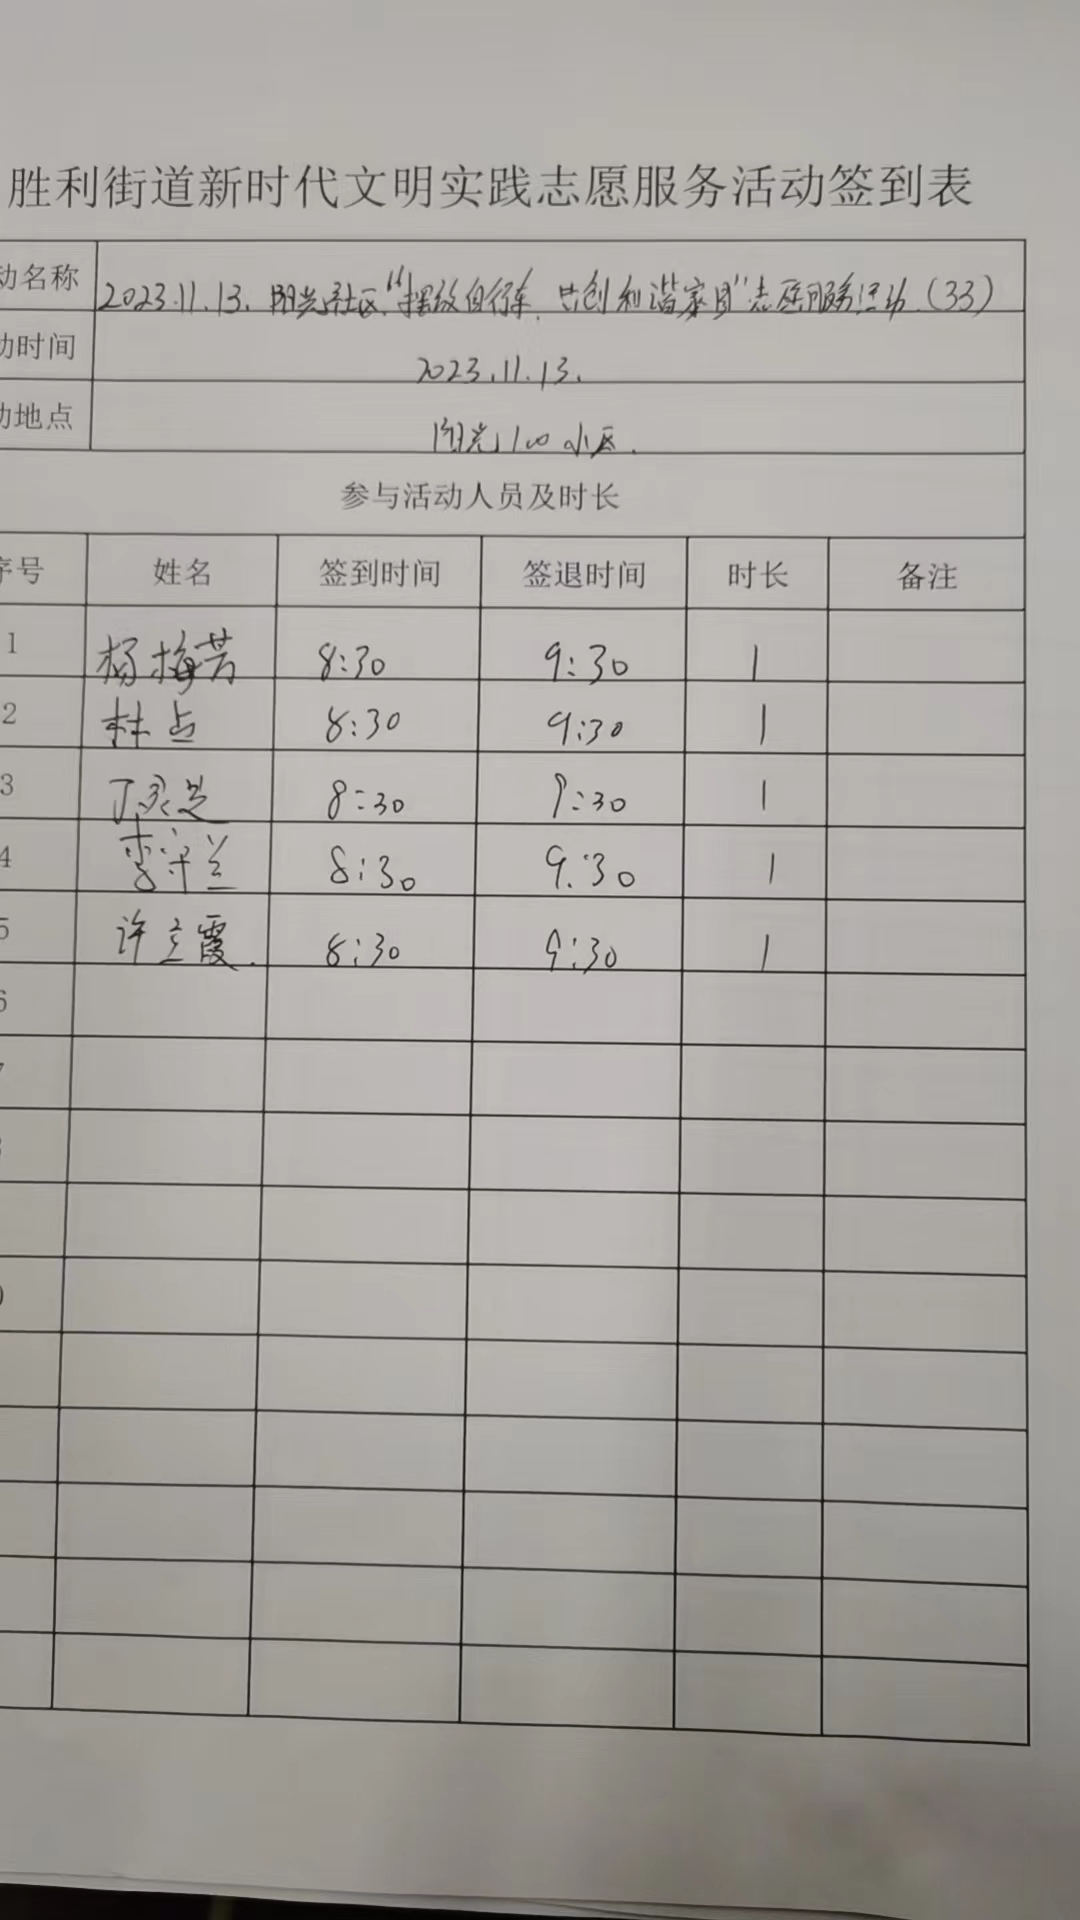 胜利街道新时代文明实践志愿服务活动签到表
动名称 2023.11.13. 阳光社区“摆放自行车,共创和谐家园”志愿服务活动.(33)
动时间 2023.11.13.
动地点 阳光100小区.
参与活动人员及时长
序号 姓名 签到时间 签退时间 时长 备注
1 杨梅芳 8:30 9:30 1
2 8:30 9:30 1
3 8:30 9:30 1
4 李守兰 8:30 9:30 1
5 许立霞. 8:30 9:30 1
6
7